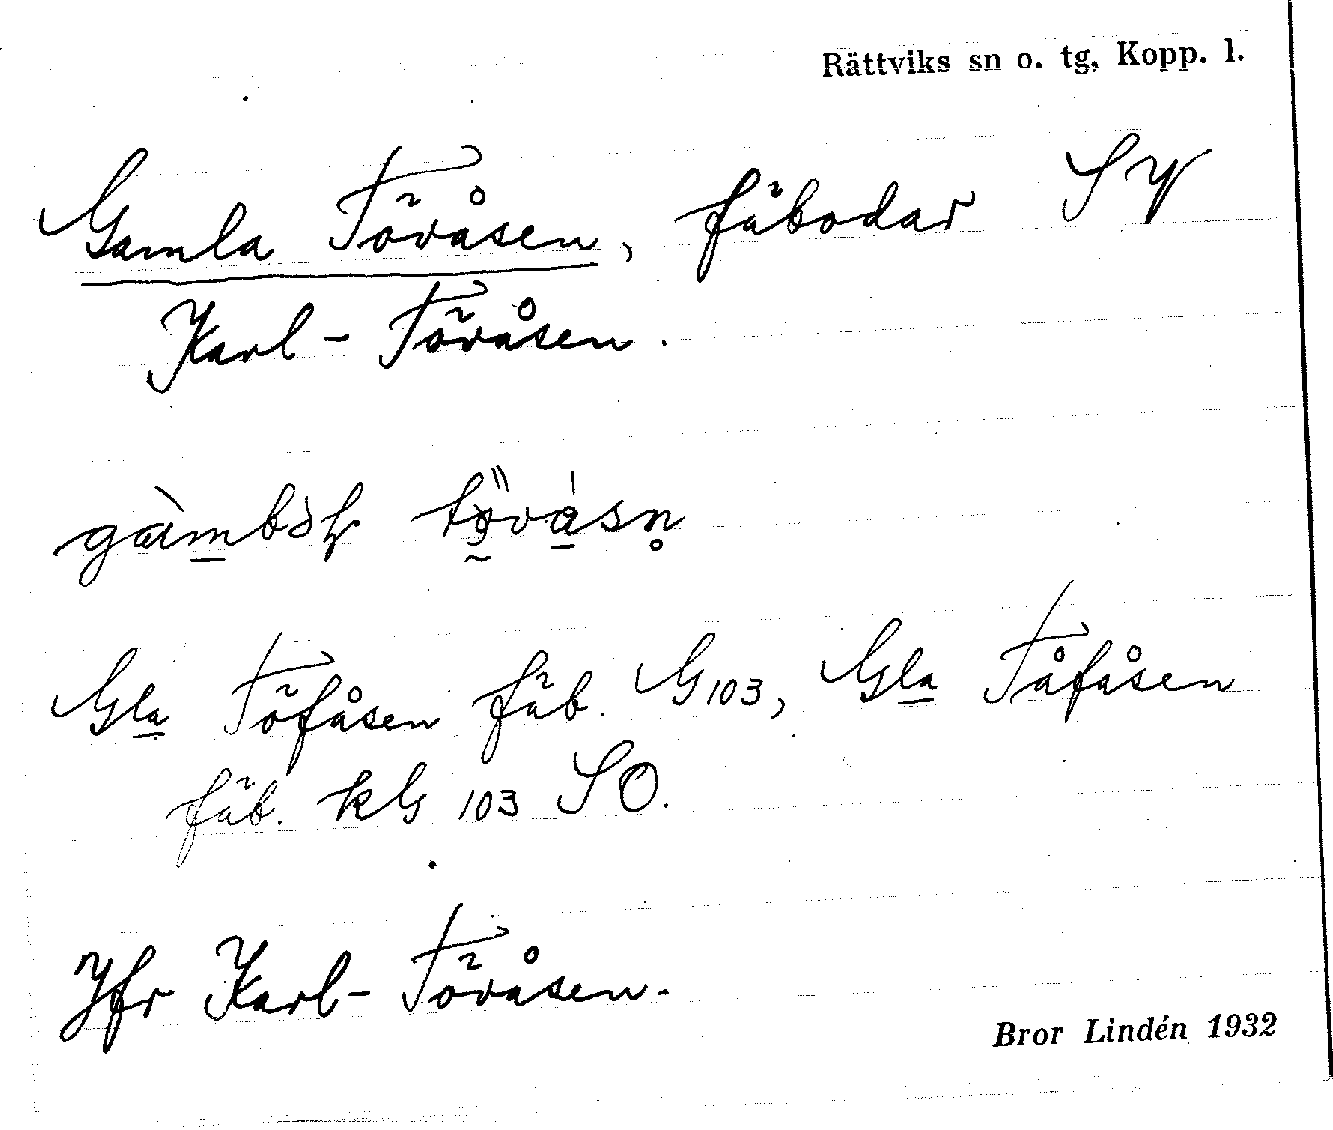 Rättviks sn o. tg, Kopp. l.
Gamla Töråsen, fäbodar SV
Karl-Töråsen.
Gla Töfåsen fäb. G 103, Gla Tåfåsen
fäb. kG 103 SO.
Jfr Karl-Töråsen.
Bror Lindén 1932